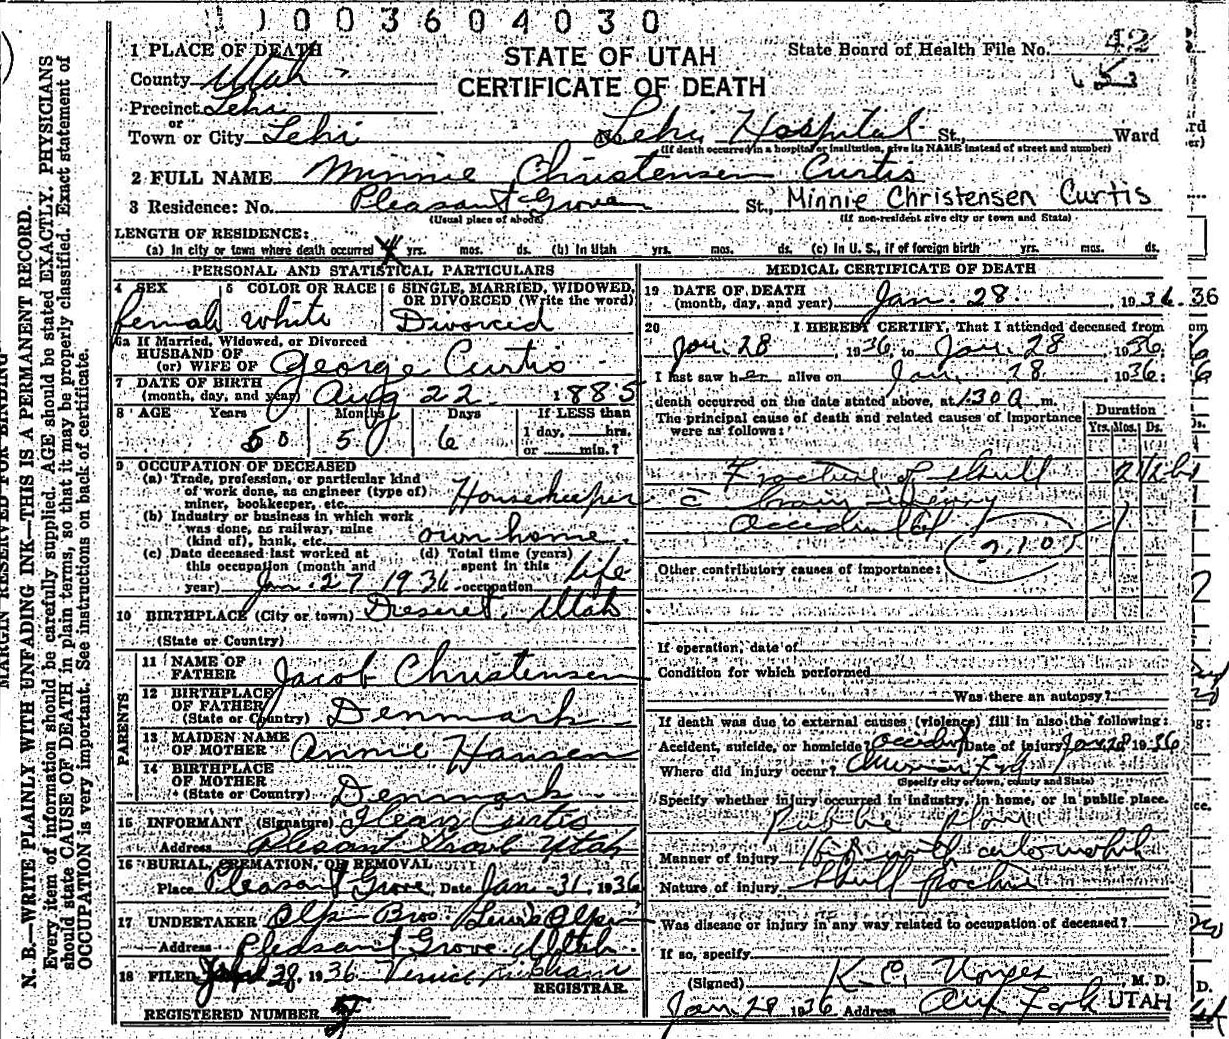 1003604030
1 PLACE OF DEATH
STATE OF UTAH
CERTIFICATE OF DEATH
State Board of Health File No. 42
County Utah
Precinct Lehi
or
Town or City Lehi No. Lehi Hospital St., Ward
(If death occurred in a hospital or institution, give its NAME instead of street and number)
2 FULL NAME Minnie Christensen Curtis
3 Residence: No. Pleasant Grove St., Minnie Christensen Curtis
(Usual place of abode) (If non-resident give city or town and State)
LENGTH OF RESIDENCE:
(a) In city or town where death occurred yrs. mos. ds. (b) In Utah yrs. mos. ds. (c) In U. S., if of foreign birth yrs. mos. ds.
PERSONAL AND STATISTICAL PARTICULARS
4 SEX 5 COLOR OR RACE 6 SINGLE, MARRIED, WIDOWED, OR DIVORCED (Write the word)
female white Divorced
6a If Married, Widowed, or Divorced
HUSBAND OF
(or) WIFE OF George Curtis
7 DATE OF BIRTH
(month, day, and year) Aug 22 1885
8 AGE Years Months Days If LESS than
50 5 6 1 day, hrs.
or min.?
9 OCCUPATION OF DECEASED
(a) Trade, profession, or particular kind
of work done, as engineer (type of)
miner, bookkeeper, etc. Housekeeper
(b) Industry or business in which work
was done, as railway, mine
(kind of), bank, etc. own home
(c) Date deceased last worked at (d) Total time (years)
this occupation (month and spent in this
year) Jan 27 1936 occupation life
10 BIRTHPLACE (City or town) Deseret, Utah
(State or Country)
PARENTS
11 NAME OF
FATHER Jacob Christensen
12 BIRTHPLACE
OF FATHER
(State or Country) Denmark
13 MAIDEN NAME
OF MOTHER Annie Hansen
14 BIRTHPLACE
OF MOTHER
(State or Country) Denmark
15 INFORMANT (Signature) Curtis
Address Pleasant Grove Utah
16 BURIAL, CREMATION, OR REMOVAL
Place Pleasant Grove, Date Jan 31, 1936
17 UNDERTAKER Bros.
Address Pleasant Grove Utah
18 FILED 28, 1936
REGISTRAR.
REGISTERED NUMBER 5
MEDICAL CERTIFICATE OF DEATH
19 DATE OF DEATH
(month, day, and year) Jan. 28, 1936. 36
20 I HEREBY CERTIFY, That I attended deceased from
Jan. 28, 1936, to Jan. 28, 1936;
I last saw her alive on Jan. 28 1936;
death occurred on the date stated above, at 130 a m.
The principal cause of death and related causes of importance
were as follows:
Duration
Yrs. Mos. Ds.
Fracture of skull
c̄ brain
accidental
210
Other contributory causes of importance:
If operation, date of
Condition for which performed
Was there an autopsy?
If death was due to external causes (violence) fill in also the following:
Accident, suicide, or homicide? accident Date of injury Jan 28 1936
Where did injury occur? American Fork
(Specify city or town, county and State)
Specify whether injury occurred in industry, in home, or in public place.
Public place
Manner of injury automobile
Nature of injury Skull fracture
Was disease or injury in any way related to occupation of deceased?
If so, specify
(Signed) K. E. M. D.
Jan 28 1936 Address Am Fork UTAH
MARGIN RESERVED FOR BINDING
N. B.—WRITE PLAINLY WITH UNFADING INK—THIS IS A PERMANENT RECORD.
Every item of information should be carefully supplied. AGE should be stated EXACTLY. PHYSICIANS
should state CAUSE OF DEATH in plain terms, so that it may be properly classified. Exact statement of
OCCUPATION is very important. See instructions on back of certificate.